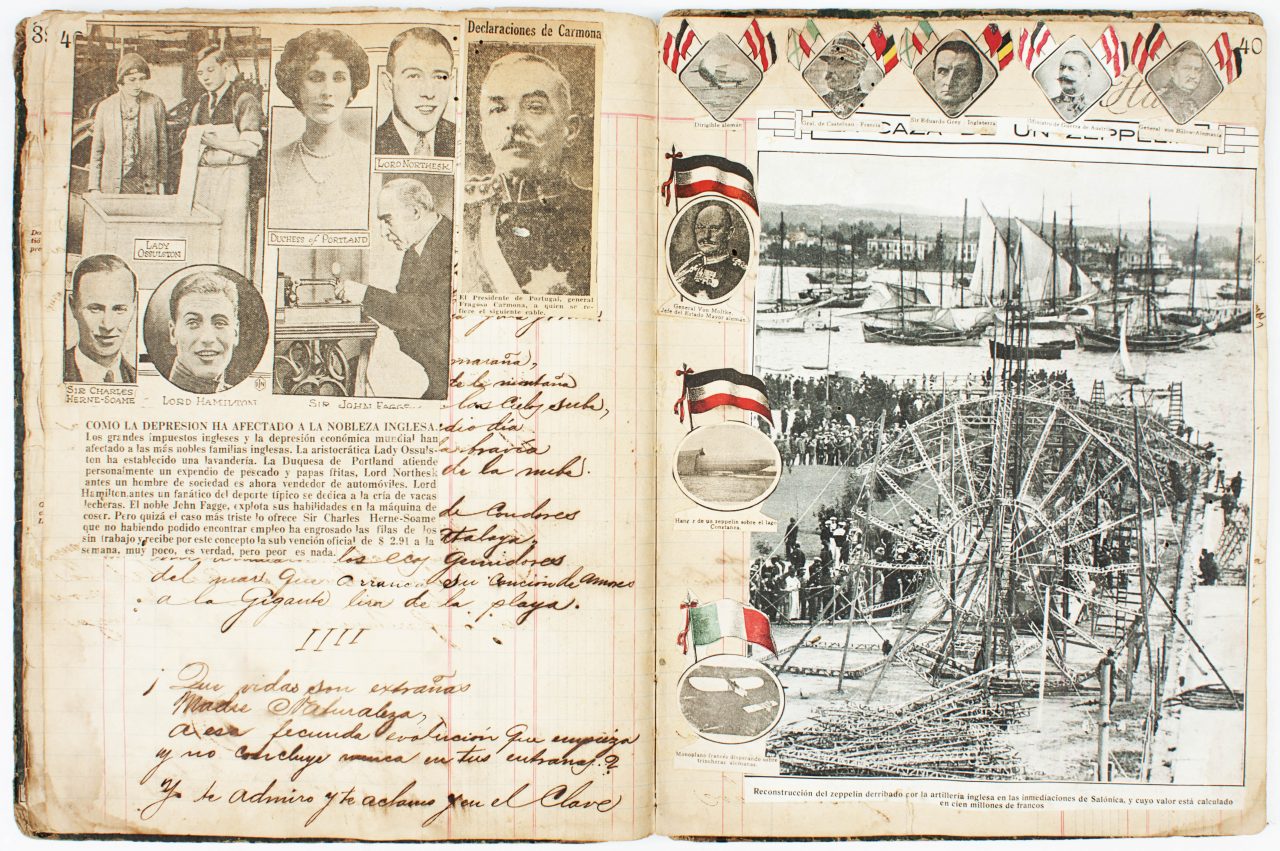 39
40
LADY
OSSULSTON
DUCHESS of PORTLAND
LORD NORTHESK
SIR CHARLES
HERNE-SOAME
LORD HAMILTON
SIR JOHN FAGGE
Declaraciones de Carmona
El Presidente de Portugal, general
Fragoso Carmona, a quien se re-
fiere el siguiente cable.
COMO LA DEPRESION HA AFECTADO A LA NOBLEZA INGLESA.
Los grandes impuestos ingleses y la depresión económica mundial han
afectado a las más nobles familias inglesas. La aristocrática Lady Ossuls-
ton ha establecido una lavandería. La Duquesa de Portland atiende
personalmente un expendio de pescado y papas fritas, Lord Northesk
antes un hombre de sociedad es ahora vendedor de automóviles. Lord
Hamilton, antes un fanático del deporte típico se dedica a la cría de vacas
lecheras. El noble John Fagge, explota sus habilidades en la máquina de
coser. Pero quizá el caso más triste lo ofrece Sir Charles Herne-Soame
que no habiendo podido encontrar empleo ha engrosado las filas de los
sin trabajo y recibe por este concepto la sub vención oficial de $ 2.91 a la
semana, muy poco, es verdad, pero peor es nada.
maraña,
te la montaña
las cuby sube,
dio dia
bravia
de la nube.
de Condores
atalaya,
los ecos gemidores
del mar que arranca su canción de amores
a la Gigante lira de la playa.
IIII
¡Que vidas son extrañas
Madre Naturaleza,
a esa fecunda evolución que empieza
y no concluye nunca en tus entrañas.?
Yo te admiro y te aclamo y en el Clave
40
Dirigible alemán
Gral. de Castelnau - Francia
Sir Eduardo Grey - Inglaterra
Ministro de Guerra de Austria
General von Bülow-Alemania
CAZA UN ZEPPELIN
General Von Moltke,
Jefe del Estado Mayor alemán.
Hangar de un zeppelin sobre el lago
Constanza.
Monoplano francés disparando sobre
trincheras alemanas.
Reconstrucción del zeppelin derribado por la artillería inglesa en las inmediaciones de Salónica, y cuyo valor está calculado
en cien millones de francos